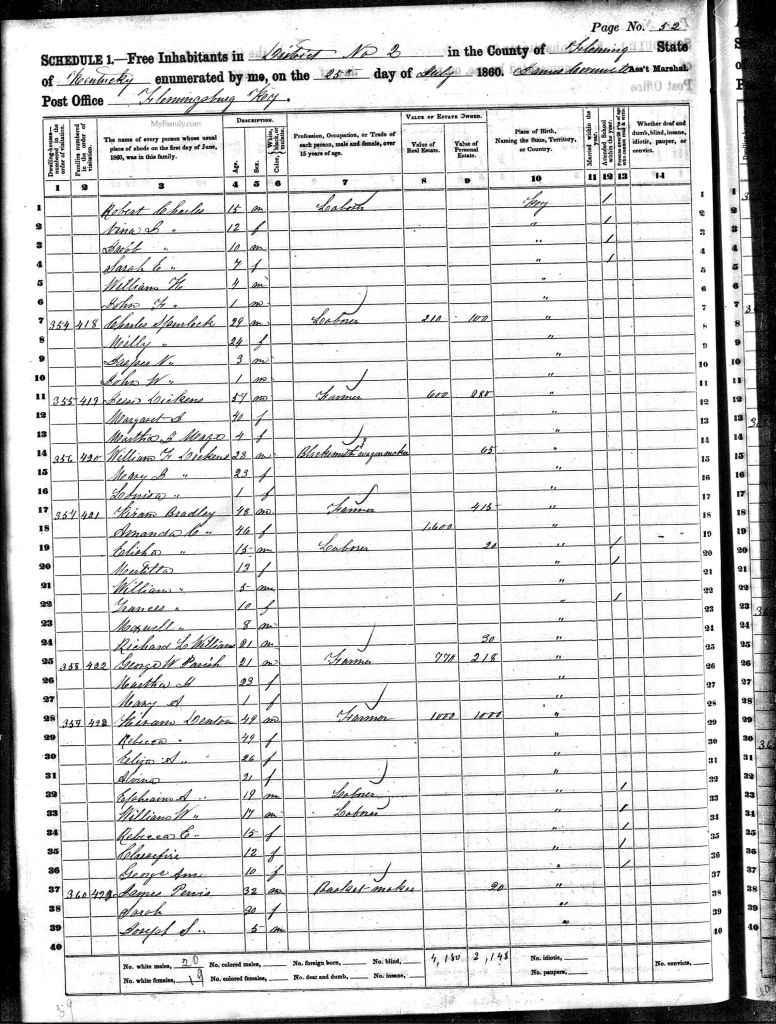 Page No. 52
SCHEDULE 1.—Free Inhabitants in District No 2 in the County of Fleming State
of Kentucky enumerated by me, on the 25th day of July 1860. James Ass't Marshal.
Post Office Flemingsburg Key.
MyFamily.com
Dwelling-houses—numbered in the order of visitation.
Families numbered in the order of visitation.
The name of every person whose usual place of abode on the first day of June, 1860, was in this family.
DESCRIPTION.
Age.
Sex.
Color, White, black, or mulatto.
Profession, Occupation, or Trade of each person, male and female, over 15 years of age.
VALUE OF ESTATE OWNED.
Value of Real Estate.
Value of Personal Estate.
Place of Birth, Naming the State, Territory, or Country.
Married within the year.
Attended School within the year.
Persons over 20 y'rs of age who cannot read & write.
Whether deaf and dumb, blind, insane, idiotic, pauper, or convict.
1 2 3 4 5 6 7 8 9 10 11 12 13 14
1 Robert Charles 15 m Laborer Key / 1
2 Nina J " 12 f " / 2
3 " 10 m " / 3
4 Sarah E " 7 f " / 4
5 William H 4 m " 5
6 John F " 1 m " 6
7 354 418 Charles Spurlock 29 m Laborer 210 100 " 7
8 Milly " 24 f " 8
9 N " 3 m " 9
10 John W " 1 m " 10
11 355 419 Jesse Dickens 57 m Farmer 600 280 " 11
12 Margaret A 40 f " 12
13 Martha J 4 f " 13
14 356 420 William F Dickens 28 m Blacksmith & wagon maker 65 " 14
15 Mary J " 23 f " 15
16 Louisa " 1 f " 16
17 357 421 Hiram Bradley 48 m Farmer 415 " 17
18 Amanda C " 46 f 1600 " 18
19 Elisha " 15 m Laborer 20 " / 19
20 13 f " / 20
21 William " 5 m " 21
22 Frances " 10 f " / 22
23 Maxwell " 8 m " 23
24 Richard L William 21 m 30 " 24
25 358 422 George W Parish 21 m Farmer 770 218 " 25
26 Martha 23 f " 26
27 Mary A 1 f " 27
28 359 423 Hiram Denton 49 m Farmer 1000 1000 " 28
29 Rebecca " 49 f " 29
30 Eliza A " 26 f " 30
31 Alvina 21 f " 31
32 Ephraim A " 19 m Laborer " / 32
33 William W " 17 m Laborer " / 33
34 Rebecca E " 15 f " / 34
35 12 f " / 35
36 George Ann 10 f " / 36
37 360 424 James Purvis 32 m Basket maker 20 " 37
38 Sarah 30 f " 38
39 Joseph S " 5 m " 39
40 40
No. white males, 20 No. colored males, No. foreign born, No. blind, 4,180 2,148 No. idiotic, No. convicts,
No. white females, 19 No. colored females, No. deaf and dumb, No. insane, No. paupers,